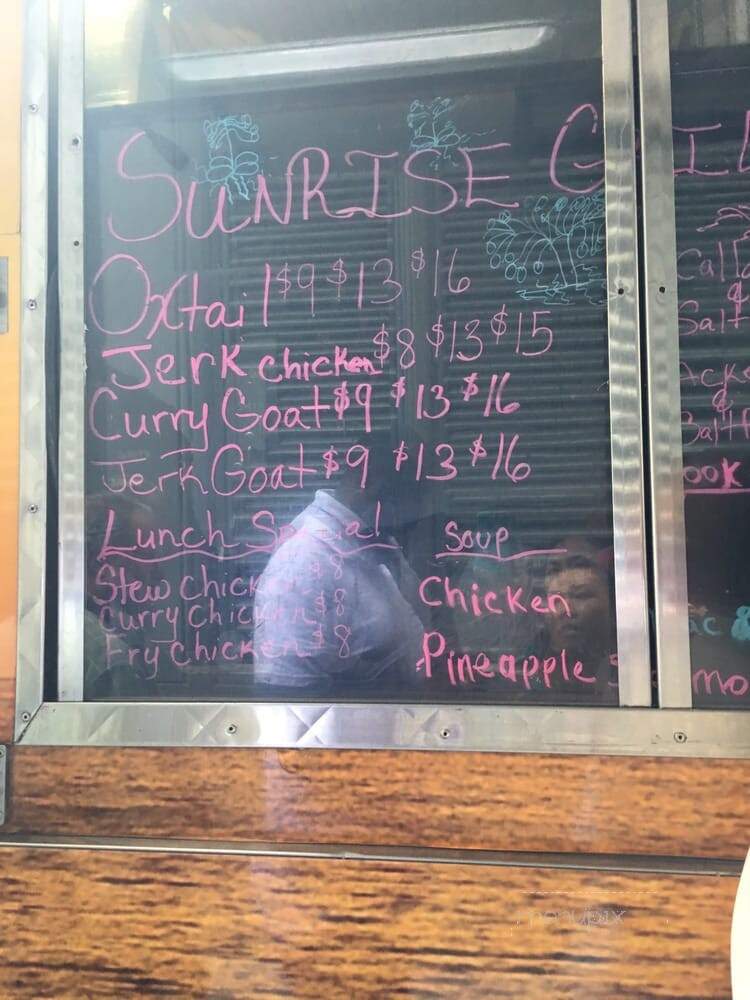 SUNRISE
Oxtail $9 $13 $16
Jerk chicken $8 $13 $15
Curry Goat $9 $13 $16
Jerk Goat $9 $13 $16
Lunch Special
Stew chicken $8
Curry chicken $8
Fry chicken $8
Soup
Chicken
Pineapple
&
Salt
&
menupix